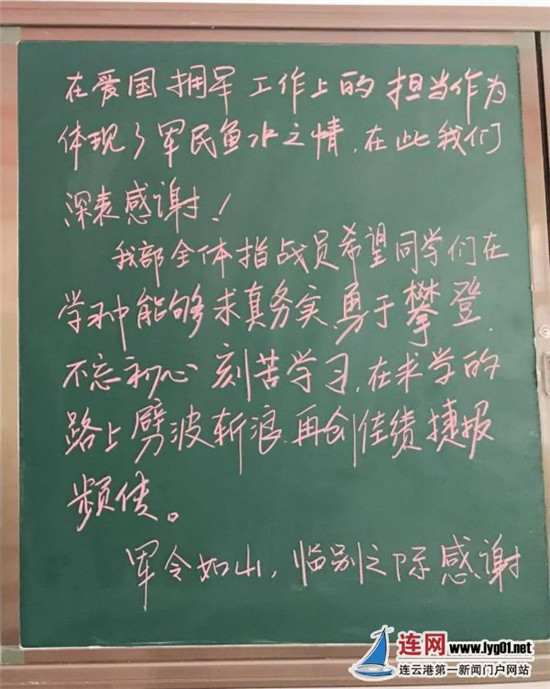 在爱国拥军工作上的担当作为
体现了军民鱼水之情，在此我们
深表感谢！
我部全体指战员希望同学们在
学习中能够求真务实，勇于攀登，
不忘初心 刻苦学习，在求学的
路上劈波斩浪 再创佳绩 捷报
频传。
军令如山，临别之际感谢
连网 www.lyg01.net
连云港第一新闻门户网站